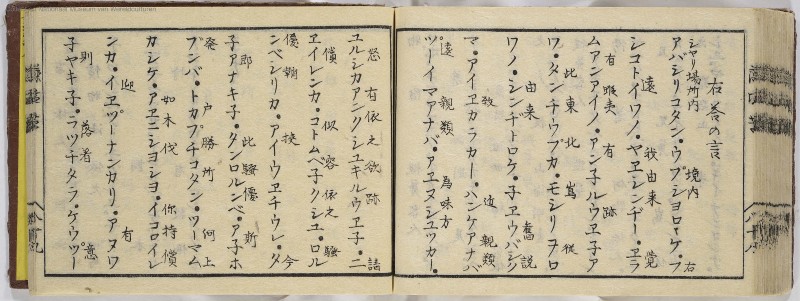 右答の言
シヤリ場所内 境内
アバシリコタン・ウブシヨロ・ケ・フ
遠 我由来 覚
シコトイワノ・ヤヱシンヂー・ヱラ
有 蝦夷 有 跡
ムアンアイノ・アン子ルウヱ子ア
此東北嶌 従
ワ・タンチウプカ・モシリヲロ
由来 舊説
ワノ・シンヂトロケ・子ヱウバシク
故 遠親類
マ・アイヱカラカー・ハンケアナバ
遠 親類 為味方
ツーイマアナバ・アヱヌシユツカー・
怒 有依之欲跡 詰
ユルシカアンクシユキルウヱ子・ニ
償 似容 依之 騒
ヱイレンカ・コトムベ子クシユ・ロル
優 鞘 挟 今
ンベシリカ・アイウヱチウレ・タ
即 此騒優 斯
子アナキ子・タンロルンベ・ア子ホ
発 戸勝所 何上
プンバ・トカプチコタン・ツーマム
如木伐 你持償
カシケ・アヱニシヨシヨ・イコロイレ
迎 有
ンカ・イヱツーナンカリ・アヌワ
則 落着 意
子ヤキ子・ラツチタラ・ケウツー